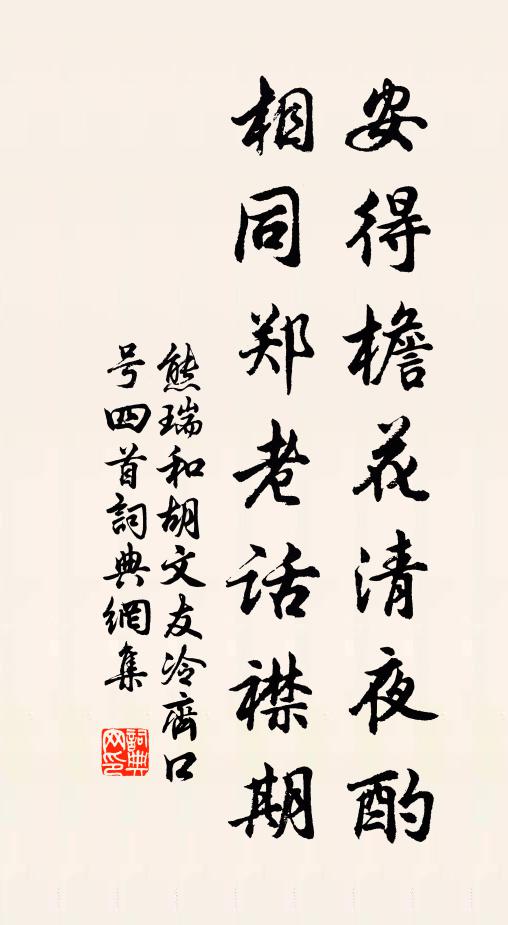 安得檐花清夜酌
相同郑老话襟期
熊瑞和胡文友冷齋口
号四首詞典網集
詞典网印